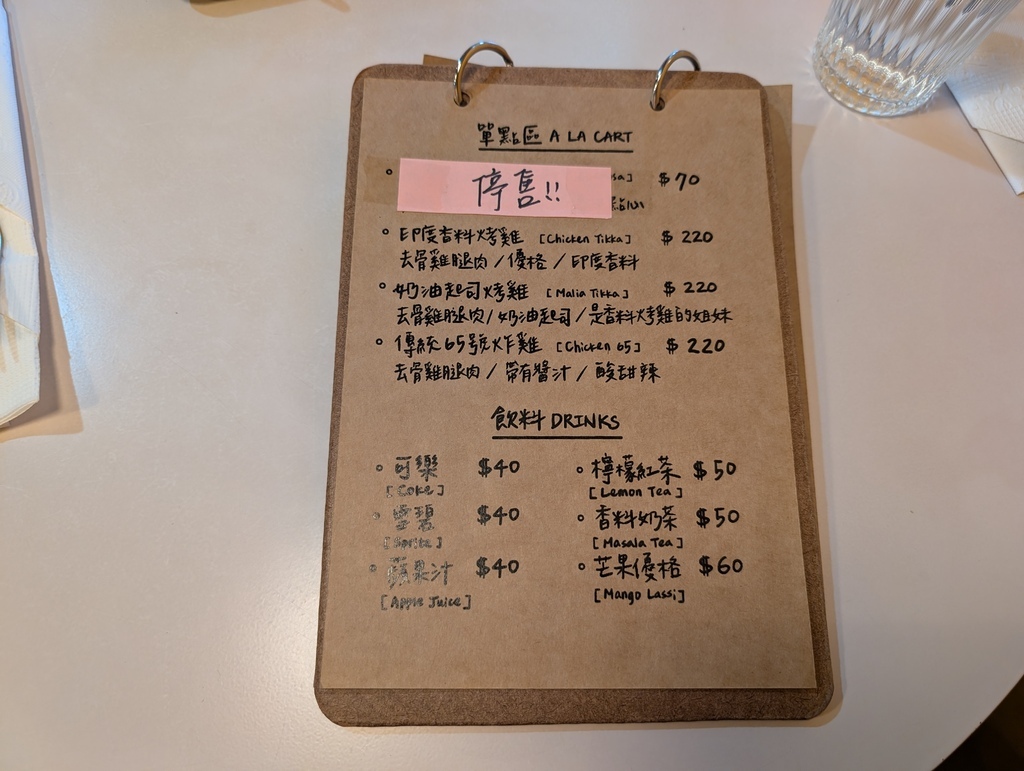 單點區 A LA CART
停售!! sa] $70
點心
印度香料烤雞 [Chicken Tikka] $220
去骨雞腿肉/優格/印度香料
奶油起司烤雞 [Malia Tikka] $220
去骨雞腿肉/奶油起司/是香料烤雞的姐妹
傳統65號炸雞 [Chicken 65] $220
去骨雞腿肉/帶有醬汁/酸甜辣
飲料 DRINKS
可樂 $40
[Coke]
雪碧 $40
[Sprite]
蘋果汁 $40
[Apple Juice]
檸檬紅茶 $50
[Lemon Tea]
香料奶茶 $50
[Masala Tea]
芒果優格 $60
[Mango Lassi]